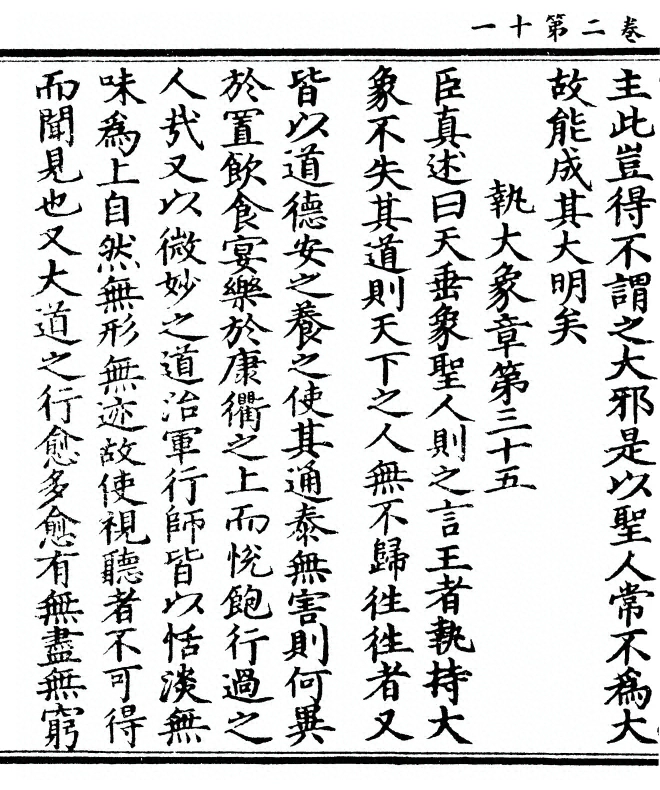 卷二第十一
主此豈得不謂之大邪是以聖人常不為大
故能成其大明矣
執大象章第三十五
臣真述曰天垂象聖人則之言王者執持大
象不失其道則天下之人無不歸往往者又
皆以道德安之養之使其通泰無害則何異
於置飲食宴樂於康衢之上而悅飽行過之
人㢤又以微妙之道治軍行師皆以恬淡無
味為上自然無形無迹故使視聽者不可得
而聞見也又大道之行愈多愈有無盡無窮